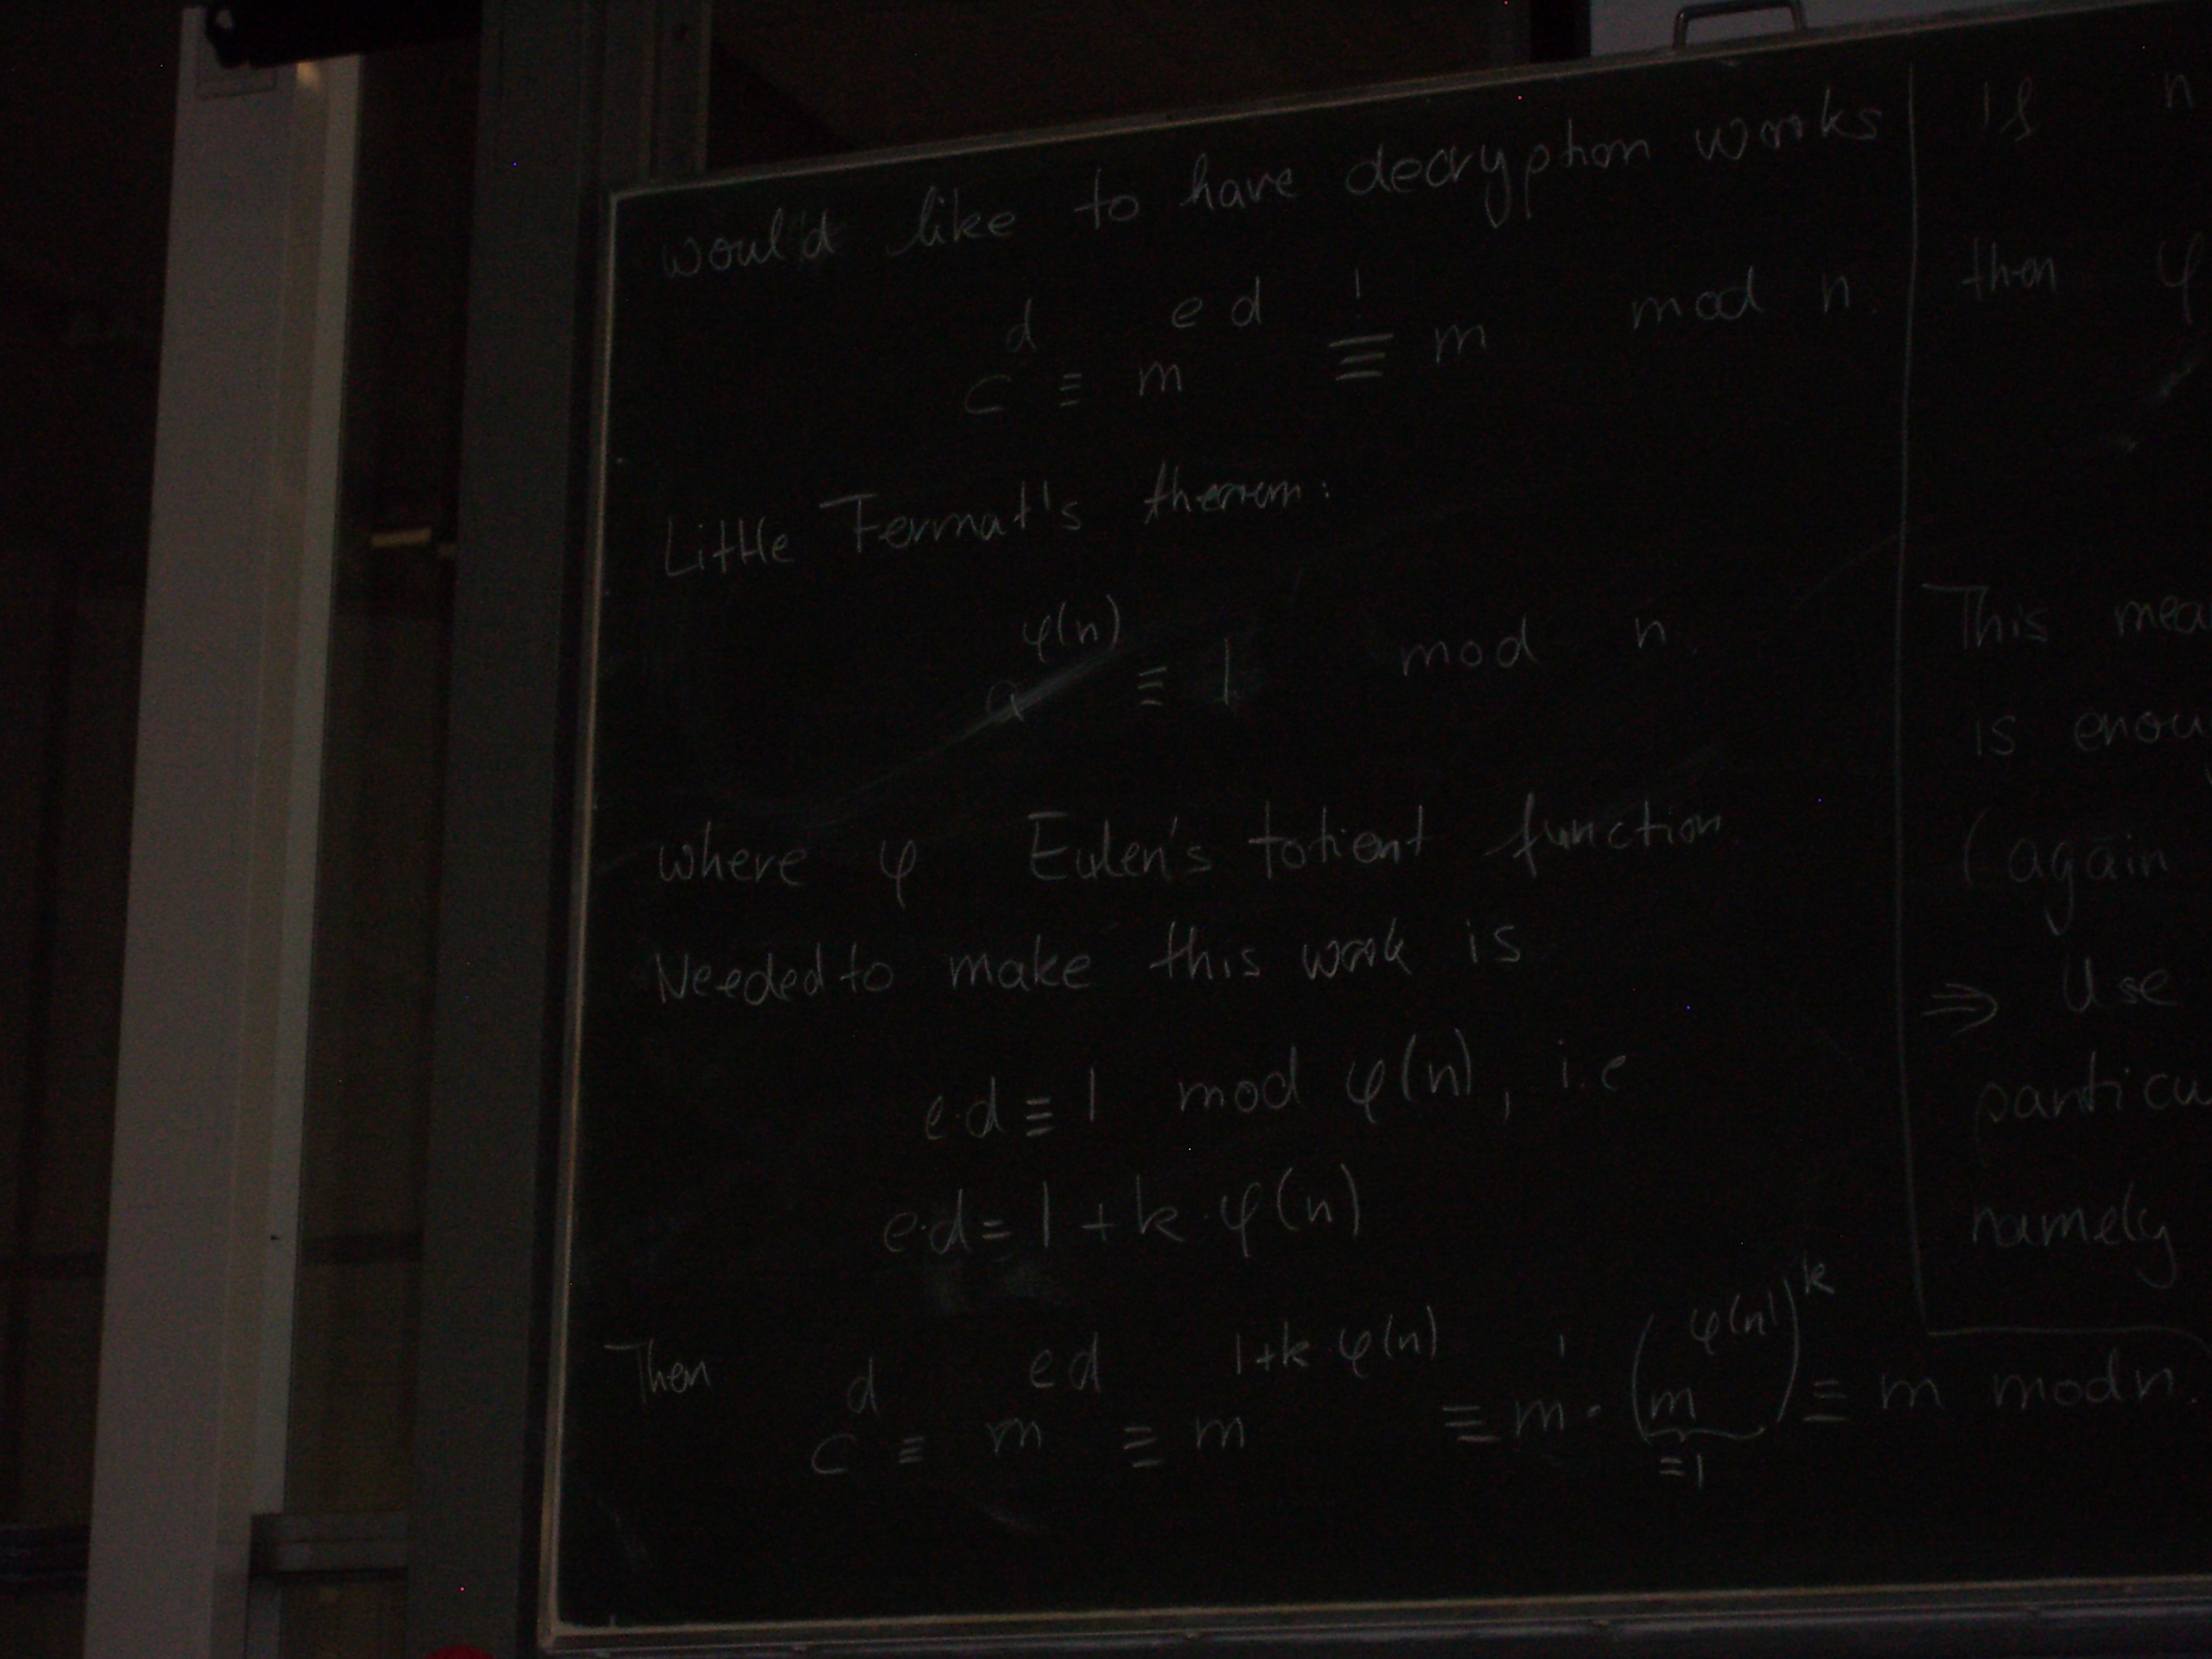 would like to have decryption works
c^d ≡ m^ed ≡! m mod n.
Little Fermat's theorem:
a^φ(n) ≡ 1 mod n.
where φ Euler's totient function
Needed to make this work is
e·d ≡ 1 mod φ(n), i.e
e·d = 1 + k·φ(n)
Then c^d ≡ m^ed ≡ m^1+k·φ(n) ≡ m^1 · (m^φ(n))^k ≡ m mod n.
≡1
If n
then φ
This mea
is enou
(again
⇒ Use
particu
namely